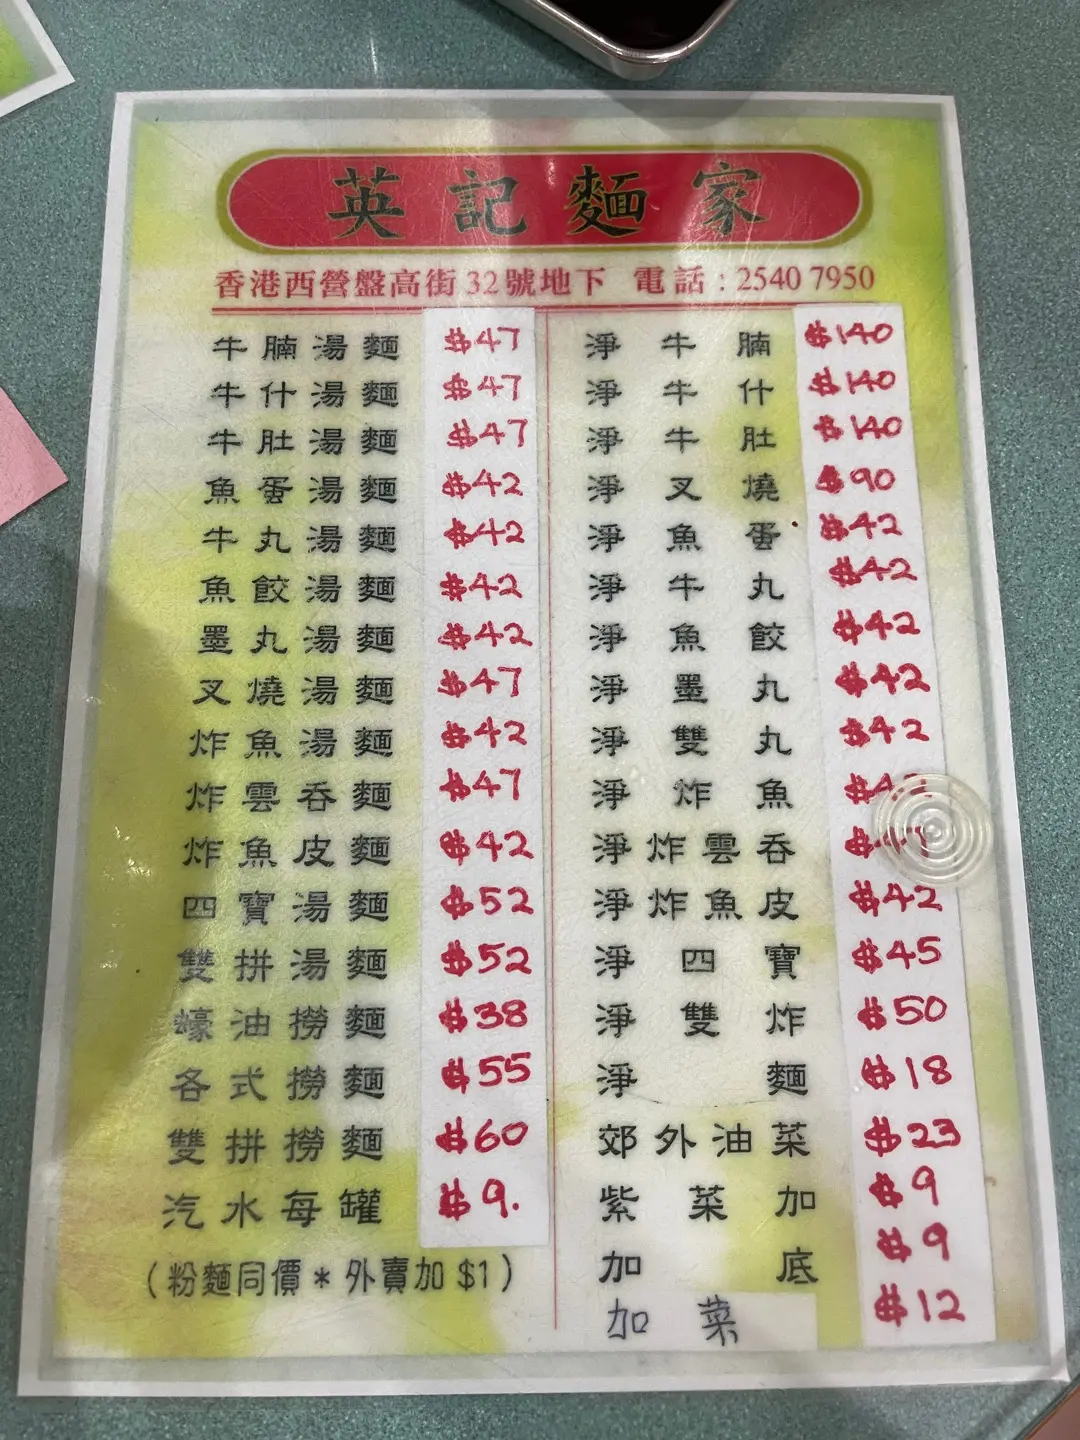 英記麵家
香港西營盤高街32號地下 電話：2540 7950
牛腩湯麵 $47
牛什湯麵 $47
牛肚湯麵 $47
魚蛋湯麵 $42
牛丸湯麵 $42
魚餃湯麵 $42
墨丸湯麵 $42
叉燒湯麵 $47
炸魚湯麵 $42
炸雲吞麵 $47
炸魚皮麵 $42
四寶湯麵 $52
雙拼湯麵 $52
蠔油撈麵 $38
各式撈麵 $55
雙拼撈麵 $60
汽水每罐 $9.
（粉麵同價＊外賣加 $1）
淨牛腩 $140
淨牛什 $140
淨牛肚 $140
淨叉燒 $90
淨魚蛋 $42
淨牛丸 $42
淨魚餃 $42
淨墨丸 $42
淨雙丸 $42
淨炸魚
淨炸雲吞
淨炸魚皮 $42
淨四寶 $45
淨雙炸 $50
淨麵 $18
郊外油菜 $23
紫菜加 $9
加底 $9
加菜 $12